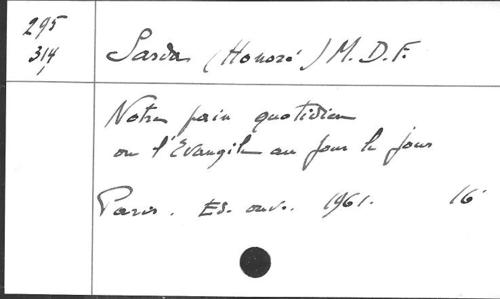 295
314
Sarda (Honoré) M. D. F.
Notre pain quotidien
ou l'Evangile au jour le jour
Paris. Ed. ouv. 1961. 16°